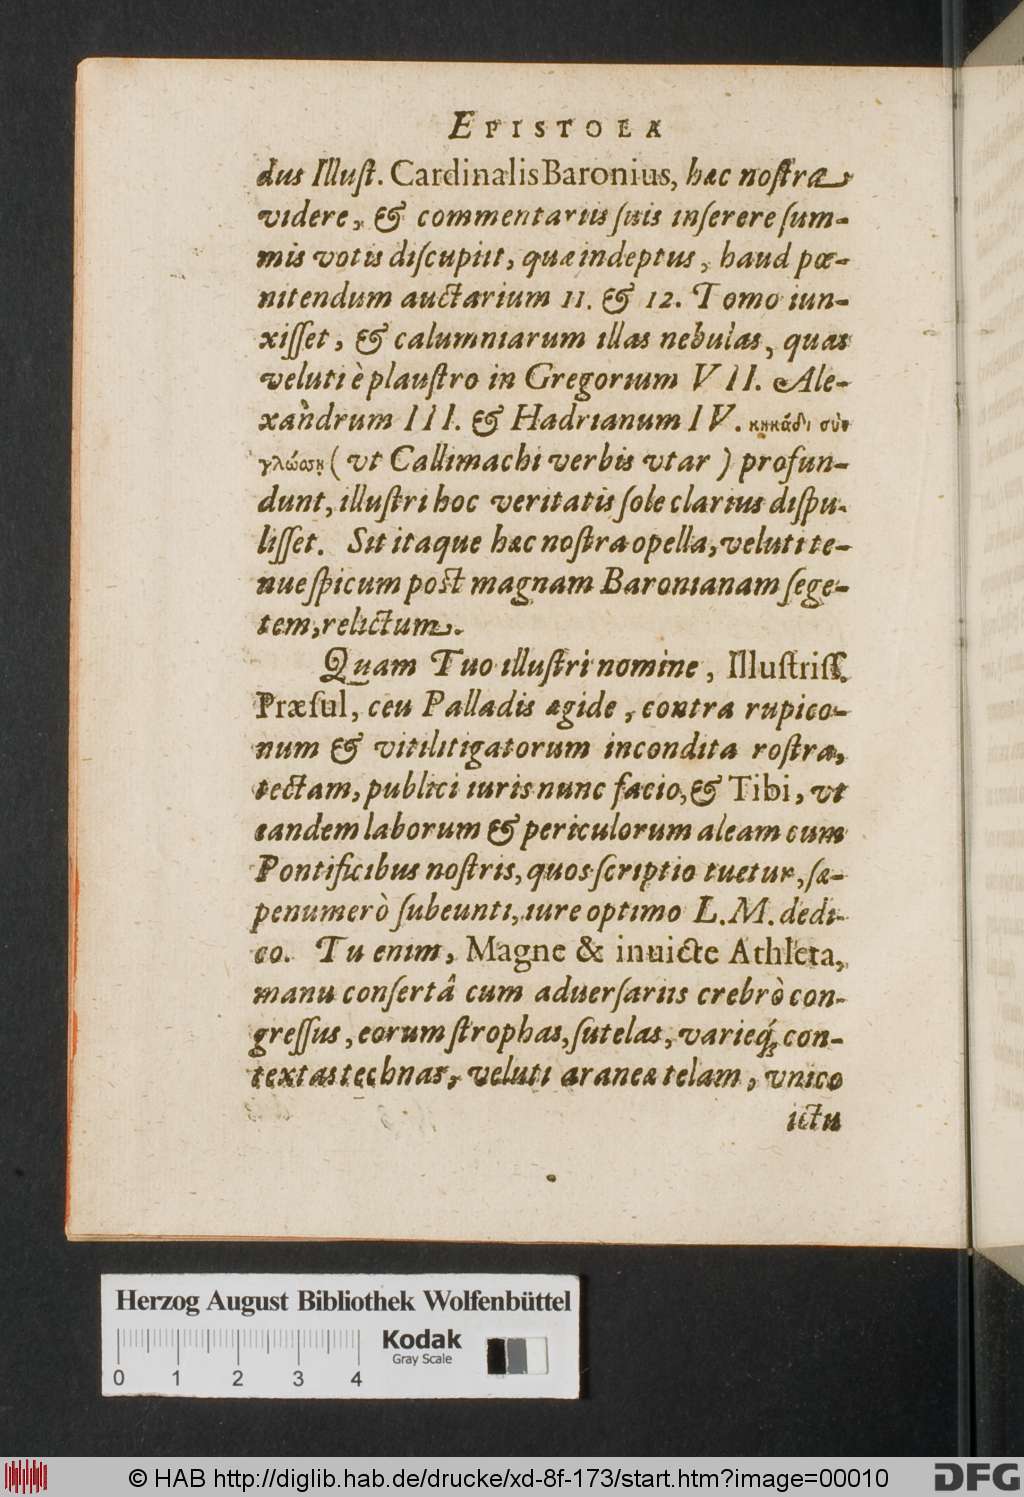 EPISTOLA
dus Illuſt. Cardinalis Baronius, hæc noſtra
videre, & commentariis ſuis inſerere ſum-
mis votis diſcupiit, quæ indeptus, haud pœ-
nitendum auctarium 11. & 12. Tomo iun-
xiſſet, & calumniarum illas nebulas, quas
veluti è plauſtro in Gregorium VII. Ale-
xandrum III. & Hadrianum IV.
γλώσσῃ (vt Callimachi verbis vtar) profun-
dunt, illuſtri hoc veritatis ſole clarius diſpu-
liſſet. Sit itaque hæc noſtra opella, veluti te-
nue ſpicum poſt magnam Baronianam ſege-
tem, relictum.
Quam Tuo illuſtri nomine, Illuſtriſſ.
Præſul, ceu Palladis ægide, contra rupico-
num & vitilitigatorum incondita roſtra,
tectam, publici iuris nunc facio, & Tibi, vt
eandem laborum & periculorum aleam cum
Pontificibus noſtris, quos ſcriptio tuetur, ſæ-
penumerò ſubeunti, iure optimo L.M. dedi-
co. Tu enim, Magne & inuicte Athleta,
manu conſertâ cum aduerſariis crebrò con-
greſſus, eorum ſtrophas, ſutelas, varieq́; con-
textas technas, veluti araneæ telam, vnico
ictu
Herzog August Bibliothek Wolfenbüttel
Kodak
Gray Scale
0 1 2 3 4
© HAB http://diglib.hab.de/drucke/xd-8f-173/start.htm?image=00010
DFG